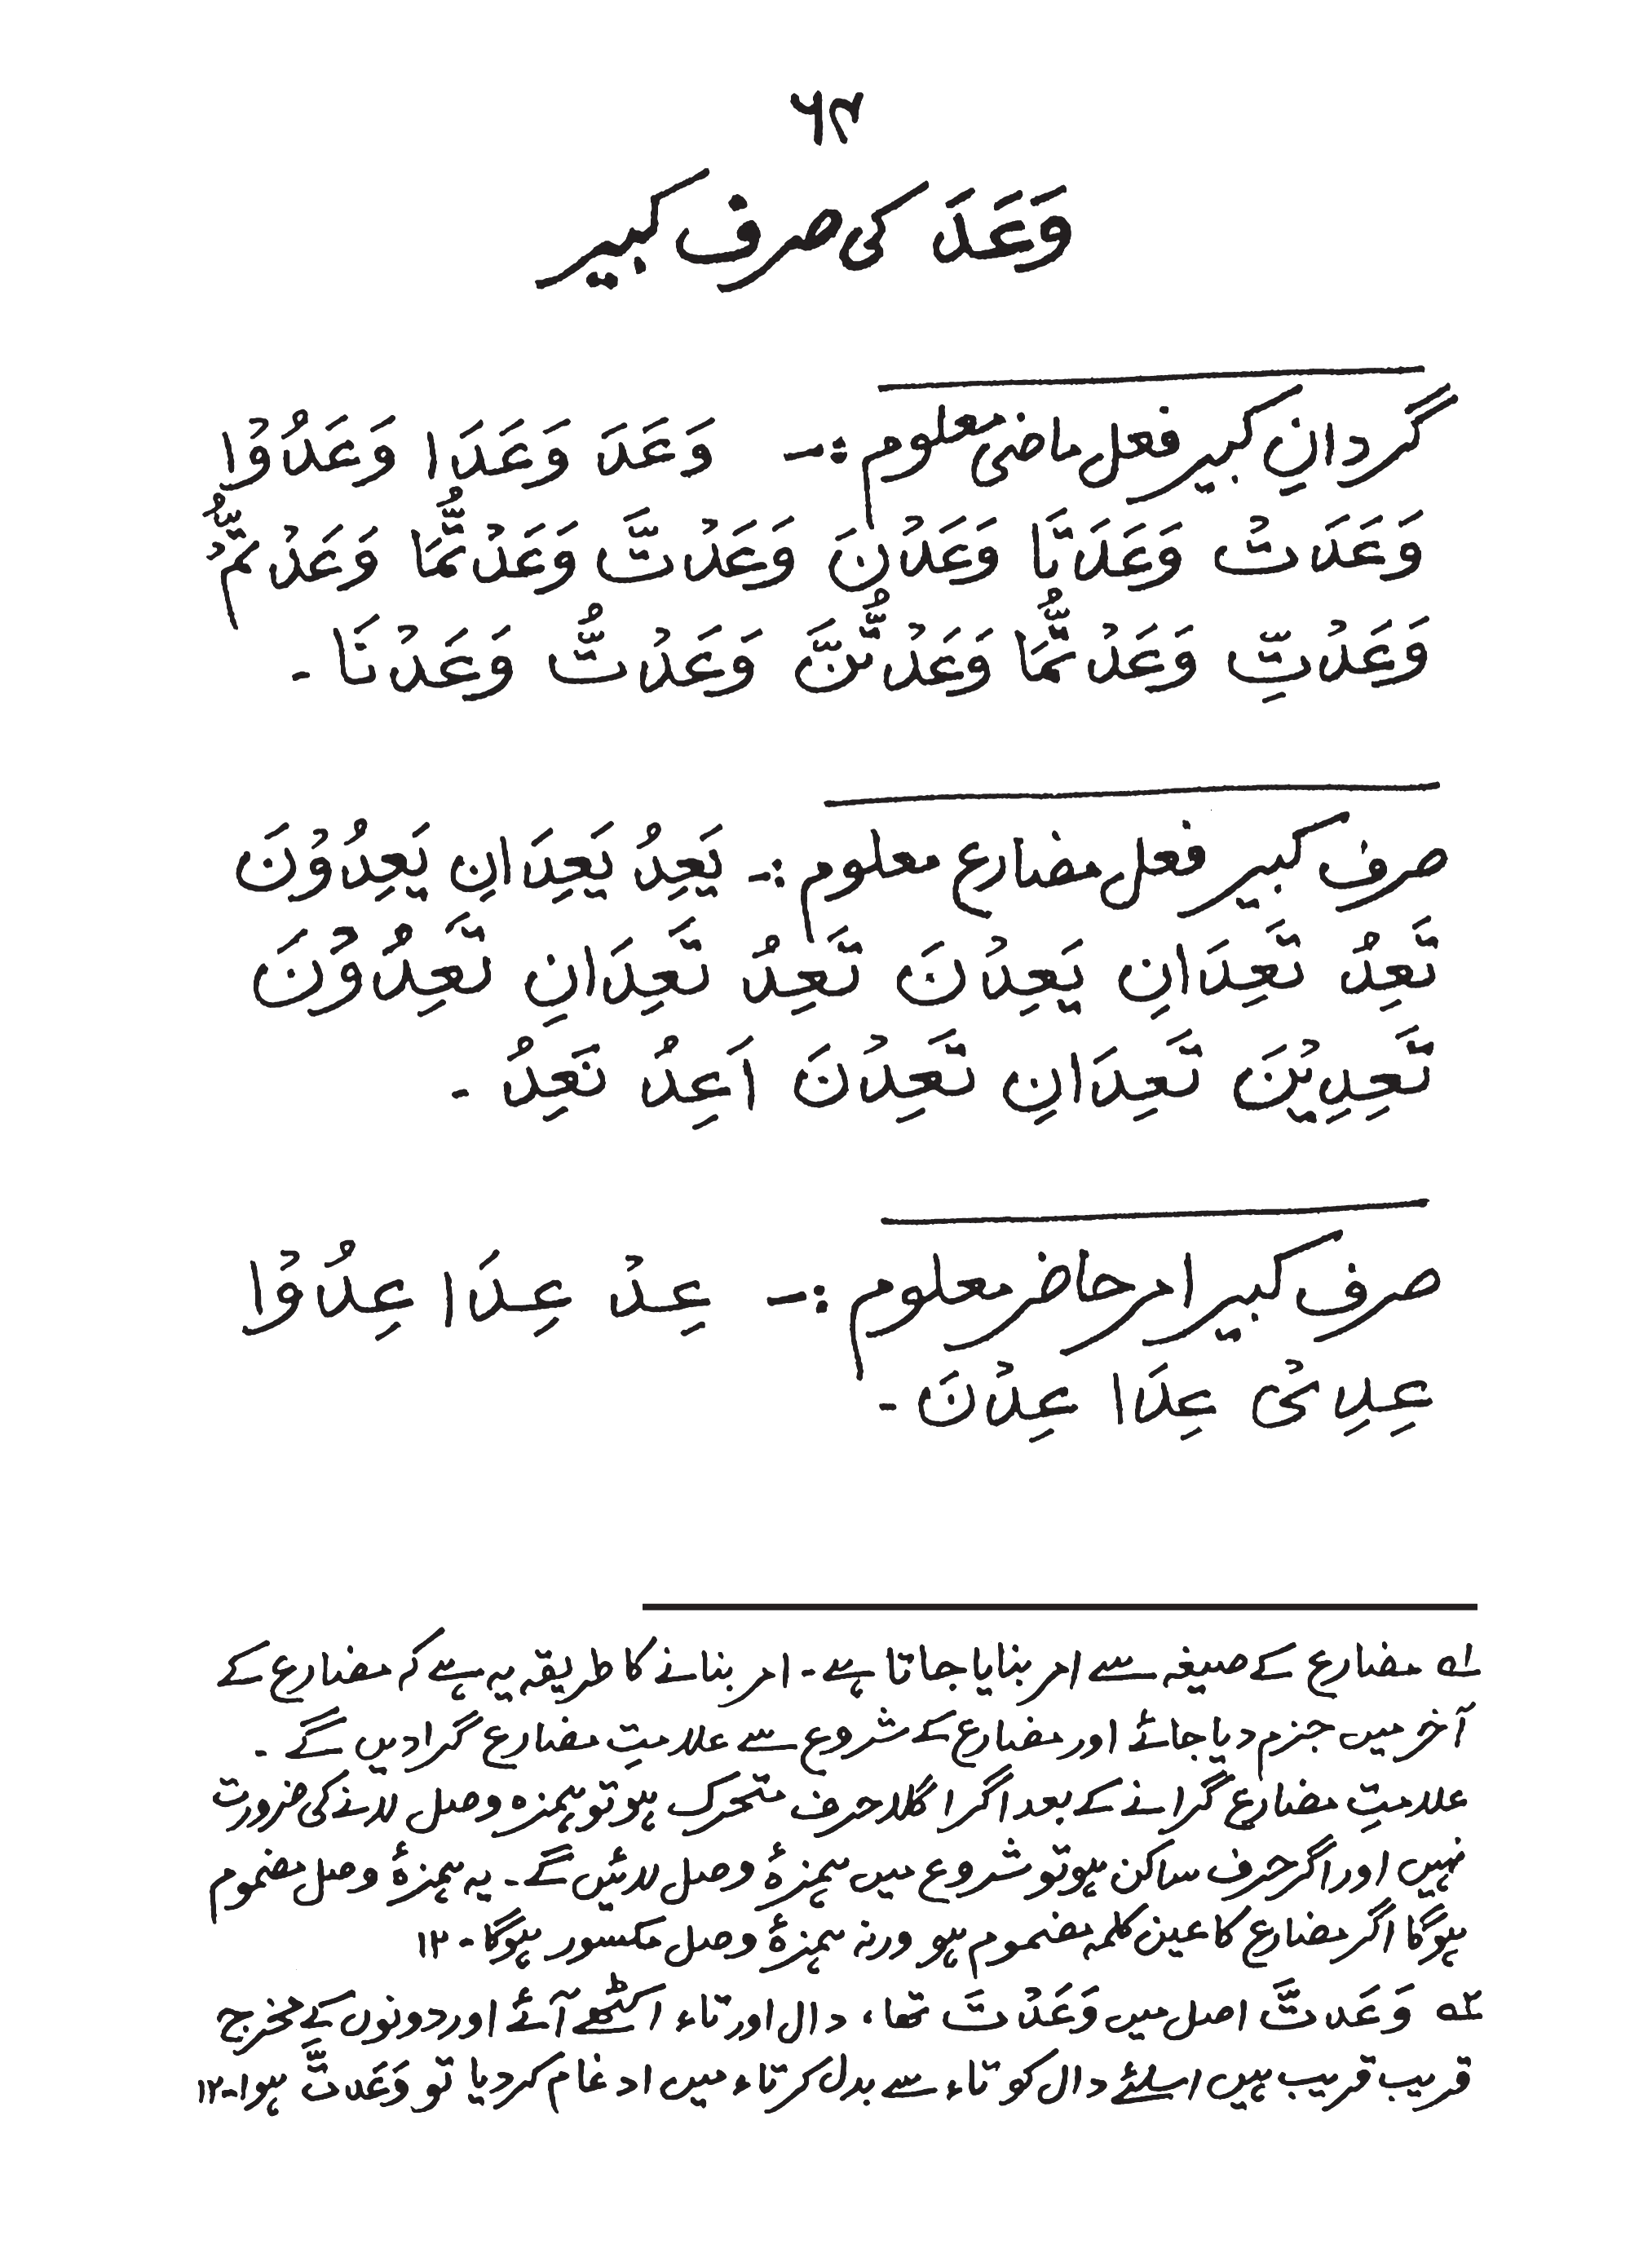 ۶۴
وَعَدَ کی صرف کبیر
گردانِ کبیر فعل ماضی معلوم :- وَعَدَ وَعَدَا وَعَدُوْا
وَعَدَتْ وَعَدَتَا وَعَدْنَ وَعَدْتَّ وَعَدْتُّمَا وَعَدْتُّمْ
وَعَدْتِّ وَعَدْتُّمَا وَعَدْتُّنَّ وَعَدْتُّ وَعَدْنَا -
صرف کبیر فعل مضارع معلوم :- یَعِدُ یَعِدَانِ یَعِدُوْنَ
تَعِدُ تَعِدَانِ یَعِدْنَ تَعِدُ تَعِدَانِ تَعِدُوْنَ
تَعِدِیْنَ تَعِدَانِ تَعِدْنَ اَعِدُ نَعِدُ -
صرفِ کبیر امر حاضر معلوم :- عِدْ عِدَا عِدُوْا
عِدِیْ عِدَا عِدْنَ -
۱؎ مضارع کے صیغہ سے امر بنایا جاتا ہے - امر بنانے کا طریقہ یہ ہے کہ مضارع کے
آخر میں جزم دیا جائے اور مضارع کے شروع سے علامتِ مضارع گرادیں گے -
علامتِ مضارع گرانے کے بعد اگر اگلا حرف متحرک ہو تو ہمزہ وصل لانے کی ضرورت
نہیں اور اگر حرف ساکن ہو تو شروع میں ہمزۂ وصل لائیں گے - یہ ہمزۂ وصل مضموم
ہوگا اگر مضارع کا عین کلمہ مضموم ہو ورنہ ہمزۂ وصل مکسور ہوگا - ۱۲
۲؎ وَعَدتَّ اصل میں وَعَدْتَ تھا، دال اور تاء اکٹھے آئے اور دونوں کے مخرج
قریب قریب ہیں اسلئے دال کو تاء سے بدل کر تاء میں ادغام کر دیا تو وَعَدتَّ ہوا-۱۲